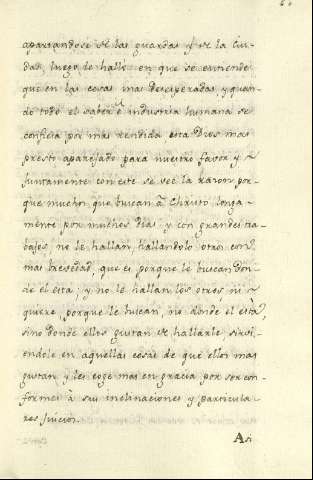 apartandose de las guardas y de la Ciu-
dad, luego le halló en que se entiende
que en las cosas mas desesperadas y quan-
do todo el saber e industria humana se
confiesa por mas rendida esta Dios mas
presto aparejado para nuestro favor y
juntamente con este se vee la razon por-
que muchos que buscan a Christo larga-
mente por muchos dias y con grandes tra-
bajos, no le hallan, hallandolo otros con
mas brevedad, que es porque le buscan don-
de el está, y no le hallan los otros, ni
quiere, porque le buscan, no donde el está,
sino donde ellos gustan de hallarle sirvi-
endole en aquellas cosas de que ellos mas
gustan y les coge mas en gracia por ser con-
formes a sus inclinaciones y particula-
res juicios.
Asi